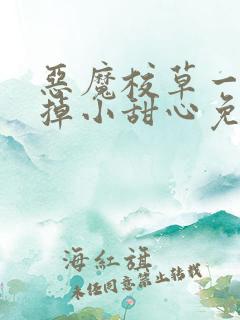 惡魔校草一
掉小甜心免
海紅旗
未经同意禁止转载